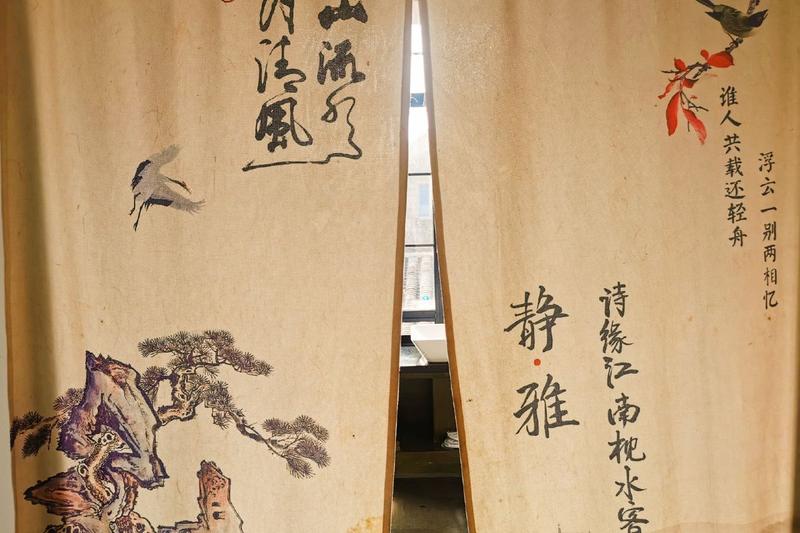 浮云一别两相忆
谁人共载还轻舟
诗缘江南枕水客
静·雅
山流水
月清風